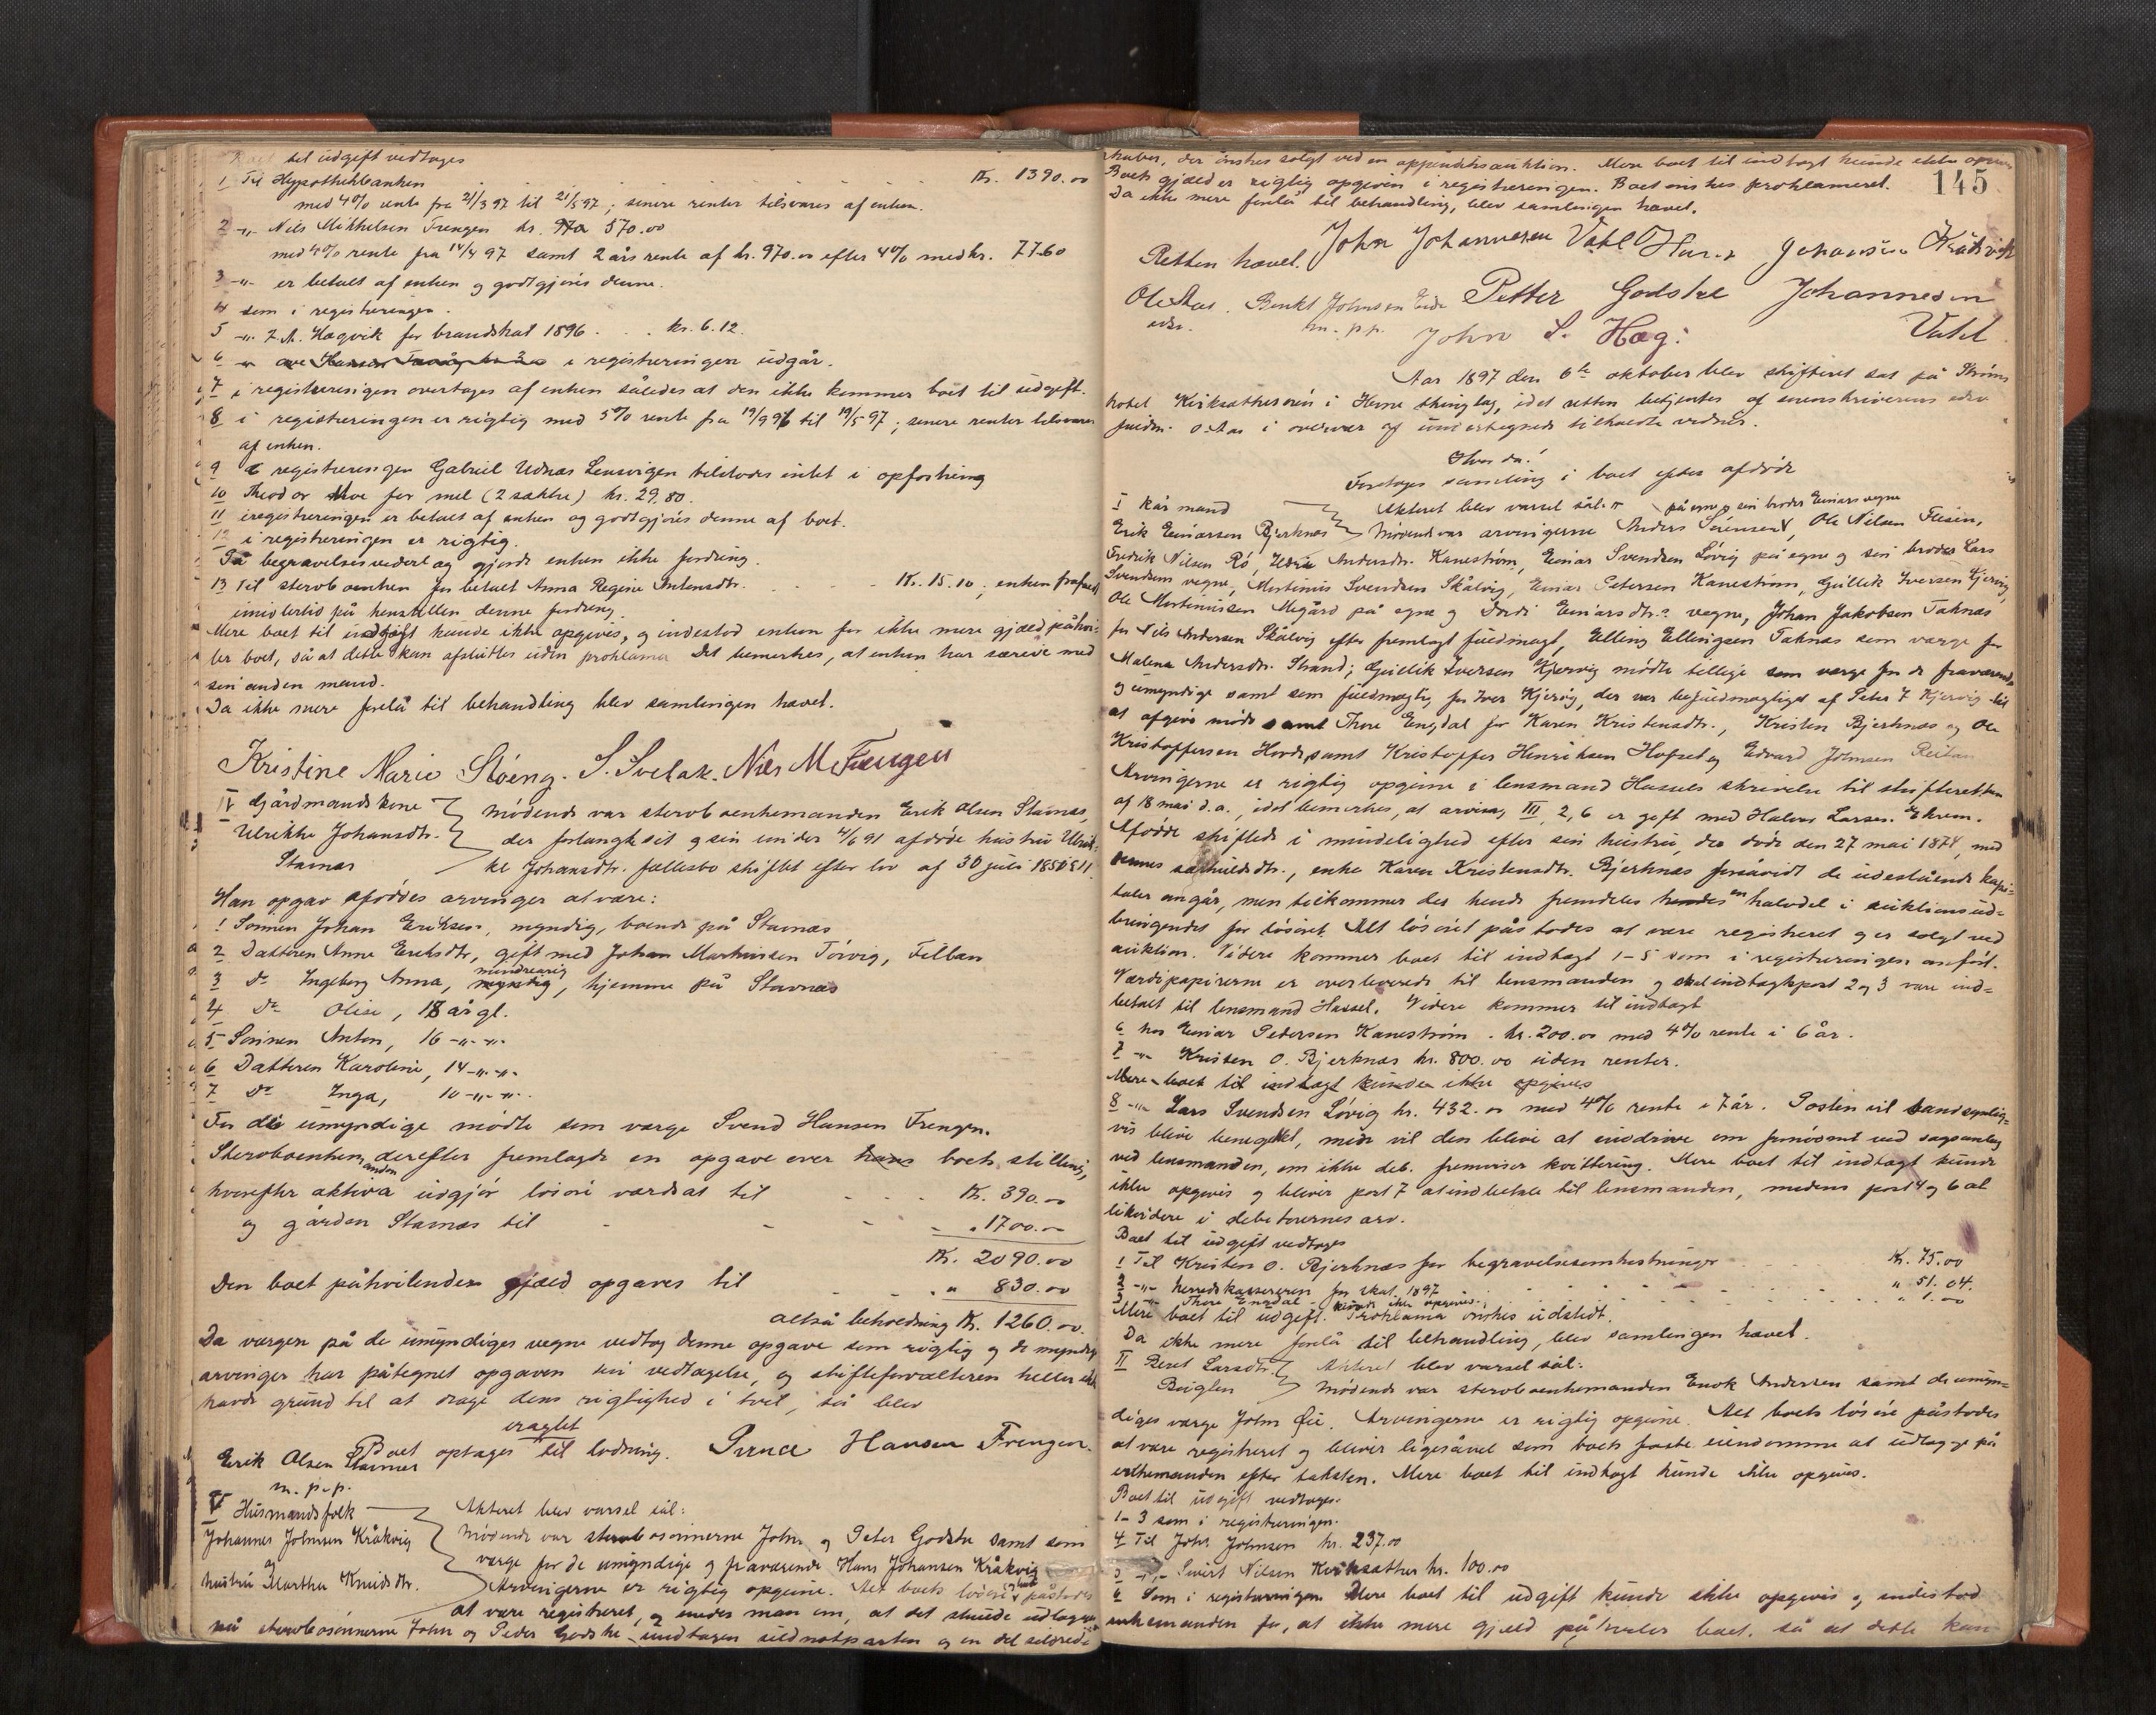 til udgift vedtages
1 Til Hypothekbanken Kr. 1390.00
med 4% rente fra 21/3 97 til 21/5 97; senere renter tilsvares af enken.
2 -"- Nils Mikkelsen Frengen kr. 570.00
med 4% rente fra 14/4 97 samt 2 års rente af kr. 970.00 efter 4% med kr. 77.60
3 -"- er betalt af enken og godtgjøres denne.
4 som i registreringen.
5 -"- Hagvik for brandskat 1896 . . . kr. 6.12.
6 i registreringen udgår.
7 i registreringen overtages af enken således at den ikke kommer boet til udgift.
8 i registreringen er rigtig med 5% rente fra 19/9 96 til 19/5 97; senere renter tilsvares
af enken.
9 i registreringen Gabriel Udnæs Lensvigen tilstodes intet i opfostring
10 Theodor for mel (2 sække) kr. 29.80.
11 i registreringen er betalt af enken og godtgjøres denne af boet.
12 i registreringen er rigtig.
På begravelsesvederlag gjorde enken ikke fordring.
13 Til sterboenken for betalt Anna Regine Antonsdtr. Kr. 15.10; enken frafaldt
imidlertid på henstillen denne fordring.
Mere boet til indtægt kunde ikke opgives, og indestod enken for ikke mere gjæld påhvi-
ler boet, så at dette kan afsluttes uden proklama. Det bemerkes, at enken har særeie med
sin anden mand.
Da ikke mere forelå til behandling blev samlingen hævet.
Kristine Marie Slóeng. S. Svelak. Nils M. Frengen
IV Gårdmandskone
Ulrikke Johansdtr.
Stavnæs
Mødende var sterboenkemanden Erik Olsen Stavnæs,
der forlangte sit og sin under 4/6 91 afdøde hustru Ulrik-
ke Johansdtr. fællesbo skiftet efter lov af 30 juli 1851 § 11.
Han opgav afdødes arvinger at være:
1 Sønnen Johan Eriksen, myndig, boende på Stavnæs
2 Datteren Anne Eriksdtr, gift med Johan Martinsen Tørvig, Fillan
3 Do Ingeborg Anna, myndig mindreårig, hjemme på Stavnæs
4 Do Olise, 18 år gl.
5 Sønnen Anton, 16 -"- -"-
6 Datteren Karoline, 14 -"- -"-
7 Do Inga, 10 -"- -"-
For de umyndige mødte som værge Svend Hansen Frengen.
Sterboenkemanden derefter fremlagde en opgave over hans boets stilling,
hvorefter aktiva udgjør løsøre værdsat til Kr. 390.00
og gården Stavnæs til " 1700.00
Kr. 2090.00
Den boet påhvilende gjæld opgaves til " 830.00
altså beholdning Kr. 1260.00.
Da værgen på de umyndiges vegne vedtog denne opgave som rigtig og de myndige
arvinger har påtegnet opgaven sin vedtagelse, og skifteforvalteren heller ikke
havde grund til at drage dens rigtighed i tvil, så blev
eragtet
Boet optages til lodning.
Erik Olsen Stavnæs
m. p. p.
Svend Hansen Frengen.
V Husmandsfolk
Johannes Johnsen Kråkvig
og
hustru Martha Knudsdtr.
Akteret blev varsel sål:
Mødende var sterbosønnerne John og Peter Godske samt som
værge for de umyndige og fraværende Hans Johansen Kråkvig
Arvingerne er rigtig opgivne. Alt boets løsøre påstodes
at være registreret, og enedes man om, at det skulde udlægges
på sterbosønnerne John og Peder Godske undtagen sildnotparten og en del sildred-
145
skaber, der ønskes solgt ved en oppebudsauktion. Mere boet til indtægt kunde ikke opgives
Boets gjæld er rigtig opgiven i registreringen. Boet ønskes proklameret.
Da ikke mere forelå til behandling, blev samlingen hævet.
John Johannesen Vahl Hans Johansen Kråkvik
Retten hævet.
Ole Aas. Benkt Johnsen Eide Petter Godske Johannesen
edsv. m. p. p. John L. Hæg: Vahl
Aar 1897 den 6te oktober blev skifteret sat på Strøms
hotel Kirksæterøren i Hevne thinglag, idet retten betjentes af sorenskriverens edsv
fuldm. O. Aas i overvær af undertegnede tilkaldte vidner.
Hvor da!
Foretoges samling i boet efter afdøde
I Kårmand
Erik Einarsen Bjerknæs
Akteret blev varsel sål:
Mødende var arvingerne Anders Sørensen på egne og sin broder Einars vegne, Ole Nilsen Flesen,
Fredrik Nilsen Rø, Andersdtr. Kanestrøm, Einar Svendsen Løvig på egne og sin broder Lars
Svendsens vegne, Martinus Svendsen Skålvig, Einar Petersen Kanestrøm, Gullik Iversen Kjerrig
Ole Martinussen Megård på egne og Dordi Einarsdtr.s vegne, Johan Jakobsen Taknæs
for Nils Andersen Skålvig efter fremlagt fuldmagt, Elling Ellingsen Taknæs som værge for
Malena Andersdtr. Strand; Gullik Iversen Kjørvig mødte tillige som værge for de fraværende
og umyndige samt som fuldmægtig for Iver Kjørvig, der var befuldmægtiget af Peter I Kjørvig til
at afgive møde samt Thore Engdal for Karen Kristensdtr., Kristen Bjerknæs og Ole
Kristoffersen Hovde, samt Kristoffer Henriksen Hofset og Edvard Johnsen
Arvingerne er rigtig opgivne i lensmand Hassels skrivelse til skifteretten
af 18 mai d.a., idet bemerkes, at arving III, 2, 6 er gift med Halvor Larsen Ekrem.
Afdøde skiftede i mindelighed efter sin hustru, der døde den 27 mai 1874, med
dennes enke Karen Kristensdtr. Bjerknæs forsåvidt de udestående kapi-
taler angår, men tilkommer der hende fremdeles en halvdel i auktionsud-
bringendet for løsøret. Alt løsøret påstodes at være registreret og er solgt ved
auktion. Videre kommer boet til indtægt 1-5 som i registreringen anført.
Værdipapirerne er overleverede til lensmanden og skal indtægtspost 2 og 3 være ind-
betalt til lensmand Hassel. Videre kommer til indtægt
6 hos Einar Pedersen Kanestrøm . kr. 200.00 med 4% rente i 6 år.
7 -"- Kristen O. Bjerknæs kr. 800.00 uden renter.
Mere boet til indtægt kunde ikke opgives
8 -"- Lars Svendsen Løvig kr. 432.00 med 4% rente i 7 år. Posten vil sandsynlig-
vis blive benegtet, men vil den blive at inddrive om fornødent ved sagsanlæg
ved lensmanden, om ikke deb. fremviser kvittering. Mere boet til indtægt kunde
ikke opgives og bliver post 7 at indbetale til lensmanden, medens post 4 og 6 at
likvidere i debitorernes arv.
Boet til udgift vedtages
1 Til Kristen O. Bjerknæs for begravelsesomkostninger Kr. 75.00
2 -"- herredskassereren for skat 1897 " 51.04.
3 -"- Thore Engdal " 1.00
Mere boet til udgift kunde ikke opgives. Proklama ønskes udstedt.
Da ikke mere forelå til behandling, blev samlingen hævet.
II Beret Larsdtr.
Akteret blev varsel sål:
Mødende var sterboenkemanden Enok Andersen samt de umyn-
diges værge John Øie. Arvingerne er rigtig opgivne. Alt boets løsøre påstodes
at være registreret og bliver ligesåvel som boets faste eiendomme at udlægge på
enkemanden efter taksten. Mere boet til indtægt kunde ikke opgives.
Boet til udgift vedtages:
1-3 som i registreringen.
4 Til John Johnsen kr. 237.00
5 -"- Sivert Nilsen Kirksæther kr. 100.00
6 Som i registreringen. Mere boet til udgift kunde ikke opgives og indestod
enkemanden for, at ikke mere gjæld påhviler boet, så at dette kan